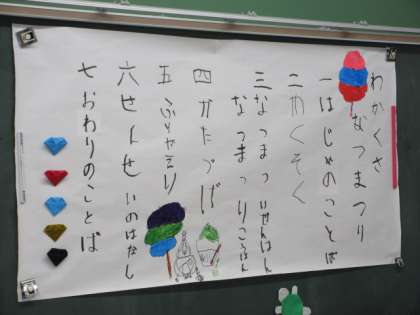 わかくさ
なつまつり
一 はじゃのことば
二 やくそく
三 なつまつりぜんはん
なつまつりこうはん
四 かたづけ
五 ふりかえり
六 せんせいのはなし
七 おわりのことば